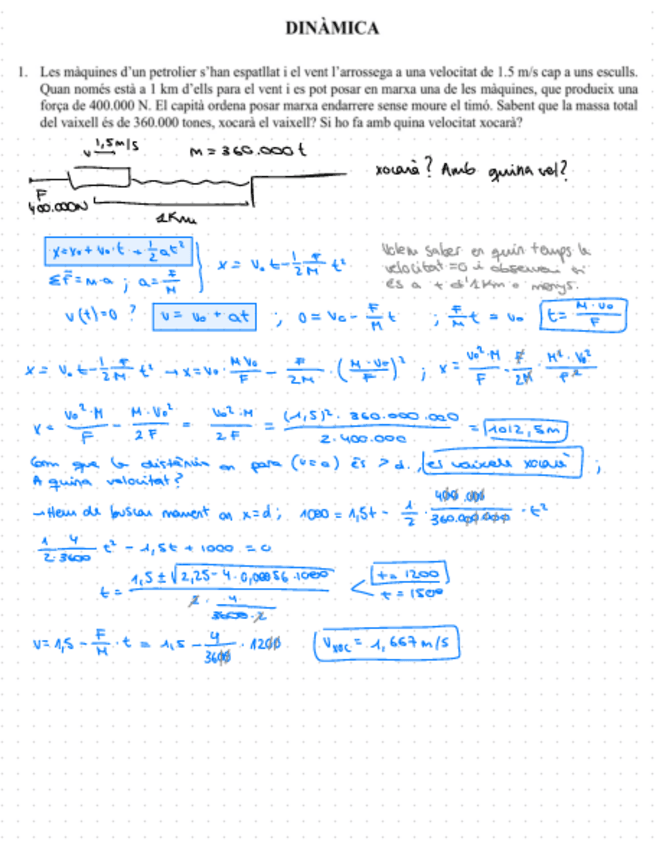 DINÀMICA
1. Les màquines d'un petrolier s'han espatllat i el vent l'arrossega a una velocitat de 1.5 m/s cap a uns esculls.
Quan només està a 1 km d'ells para el vent i es pot posar en marxa una de les màquines, que produeix una
força de 400.000 N. El capità ordena posar marxa endarrere sense moure el timó. Sabent que la massa total
del vaixell és de 360.000 tones, xocarà el vaixell? Si ho fa amb quina velocitat xocarà?
1,5m/s
M = 360.000 t
xocarà? Amb quina vel?
F
400.000N
1Km
x = x₀ + v₀·t + ½at²
ΣF̄ = M·a ; a = F/M
x = v₀t - 1/2 F/M t²
Volem saber en quin temps la
velocitat =0 i observar si
és a + d'1Km o menys.
v(t)=0 ? v = v₀ + at ; 0 = v₀ - F/M t ; F/M t = v₀ t = M·v₀/F
x = v₀t - 1/2 F/M t² → x = v₀· M v₀/F - F/2M · (M·v₀/F)² ; x = v₀²·M/F - F/2M · M²·v₀²/F²
x = v₀²·M/F - M·v₀²/2F = v₀²·M/2F = (1,5)²·360.000.000/2·400.000 = 1012,5m
Com que la distància on para (v=0) és > d, el vaixell xocarà ;
A quina velocitat?
→ Hem de buscar moment on x=d ; 1000 = 1,5t - 1/2 · 400.000/360.000.000 · t²
1/2 4/3600 t² - 1,5t + 1000 = 0
t = 1,5 ± √2,25 - 4·0,00056·1000 / 2 · 4/3600·2
t = 1200
t = 1500
v = 1,5 - F/M · t = 1,5 - 4/3600 · 1200
Vxoc = 1,667 m/s